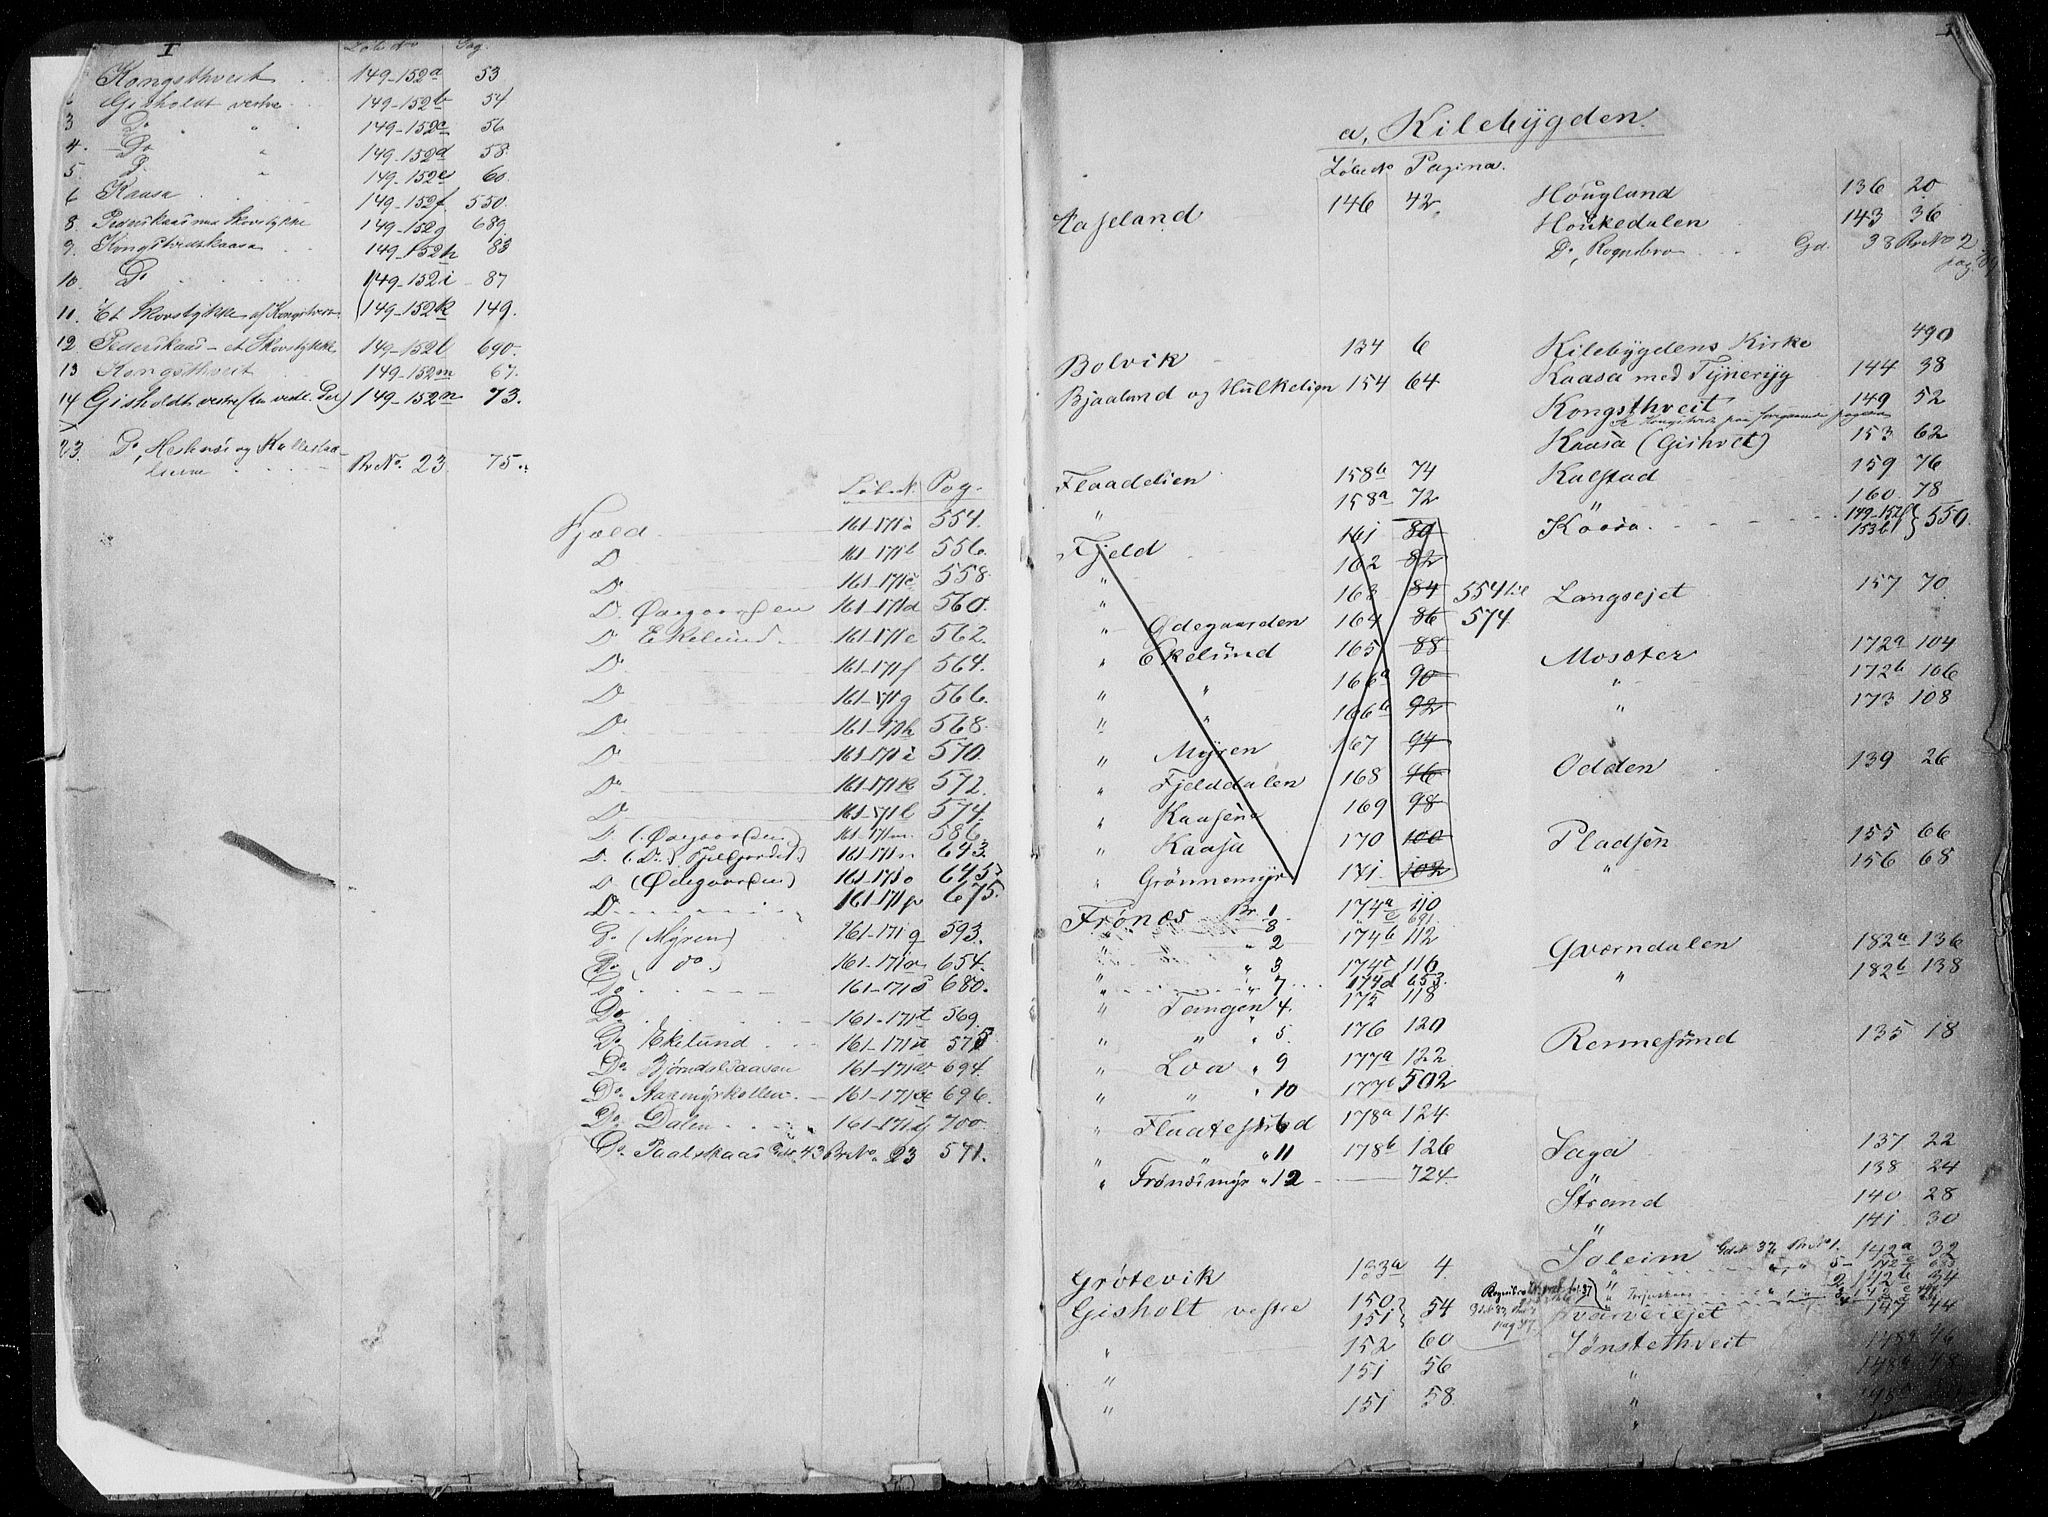 I Löbe No Pag.
Kongsthveit 149-152a 53
Gisholdt vestre 149-152b 54
3 Do " " 149-152c 56
4. Do " 149-152d 58.
5. D. " 149-152e 60.
6 Kaasa 149-152f. 550.
8 Pederskaas med Skovstykke 149-152g 689.
9. Kongstvedtkaasa 149-152h 83
10. Do 149-152i 87
11. Et Skovstykke af Kongsthveit 149-152k 149.
12. Pederskaas - et Skovstykke 149-152l 690.
13 Kongsthveit 149-152m 67.
14 Gisholdt vestre (den vestl. Del) 149-152n 73.
23. Do, Heshusi og Kallestad-
Br No. 23. 75.
Löb. N. Pag.
Fjeld 161-171a 554.
D 161-171b 556.
D. 161-171c 558.
D. Ødegaarden 161-171d 560.
D. Ekelund 161-171e 562.
D. 161-171f 564.
D. 161-171g 566.
D. 161-171h 568.
D. 161-171i 570.
D. 161-171k 572.
D 161-171l 574.
D. (Ødegaarden) 161-171m 586.
D. (Do.) Fjellgjordet) 161-171n 643.
D (Ødegaarden) 161-171o 645.
D. 161-171p 675.
Do (Myren) 161-171q 593.
Do (do.) 161-171r 654.
Do 161-171s 680.
Do 161-171t 569.
Do Ekelund 161-171u 575.
Do Bjørndalsaasen 161-171v 694.
Do Aarmyrkollen 161-171x 696.
Do Dalen 161-171y 700.
Do Paalskaas Gd. 43 Br No. 23 571.
a, Kilebygden.
Löbe No Pagina.
Aaseland 146 42
Bolvik 134 6
Bjaaland og Hulkelien 154 64
Flaadelien 158b 74
" 158a 72
Fjeld 161 80
" 162 82
" 163 84 554 til
" Ødegaarden 164 86 574.
" Ekelund 165 88
" " 166a 90
" " 166b 92
" Myren 167 94
" Fjelddalen 168 96
" Kaasene 169 98
" Kaasa 170 100
" Grønnemyr 171. 102
Frönæs Br. 1 174a 110
" " 8 e 691.
" " 2 174b 112
" " 3 174c 116
" " 7 174d 653.
" Tangen 4. 175 118
" " " 5. 176 120
" Loa " 9 177a 122
" " " 10 177b 502
" Flaatesund 6 178a 124.
" " " 11 178b 126
" Frönæsmyr " 12 724.
Grötevik 133a 4.
Gisholt vestre 150 } 54
151
" 152 60
" 151 56
" 151 58.
Hougland 136 20
Houkedalen 143 36
Do, Rognsbro Gd. 38 Br No 2
pag.
Kilebygdens Kirke 490
Kaasa med Tyneryg 144 38
Kongsthveit 149 52
Se Kongstveit paa foregaaende pagina
Kaasa (Gishvet) 153 62
Kalstad 159 76
" 160. 78
Kaasa. 149-152f } 550.
153b
Langsejet 157 70
Moseter 172a 104
" 172b 106
" 173 108
Odden 139 26
Pladsen 155 66
" 156 68
Qværndalen 182a 136
" 182b 138
Rennesund 135 18
Saga 137 22
" 138 24
Strand 140 28
" 141. 30
Soleim Gd. 37 Br No 1. 142a 32
" " 5 142e
" 2 142b 34
147 44
Jønstethveit 148a 46
" 148a 48
"
"